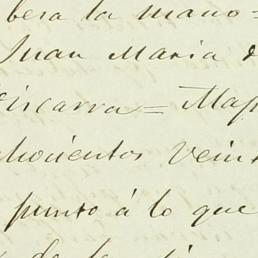 bera la mano=
Juan Maria
Viscarra= Map
chocientos vein
punto á lo que